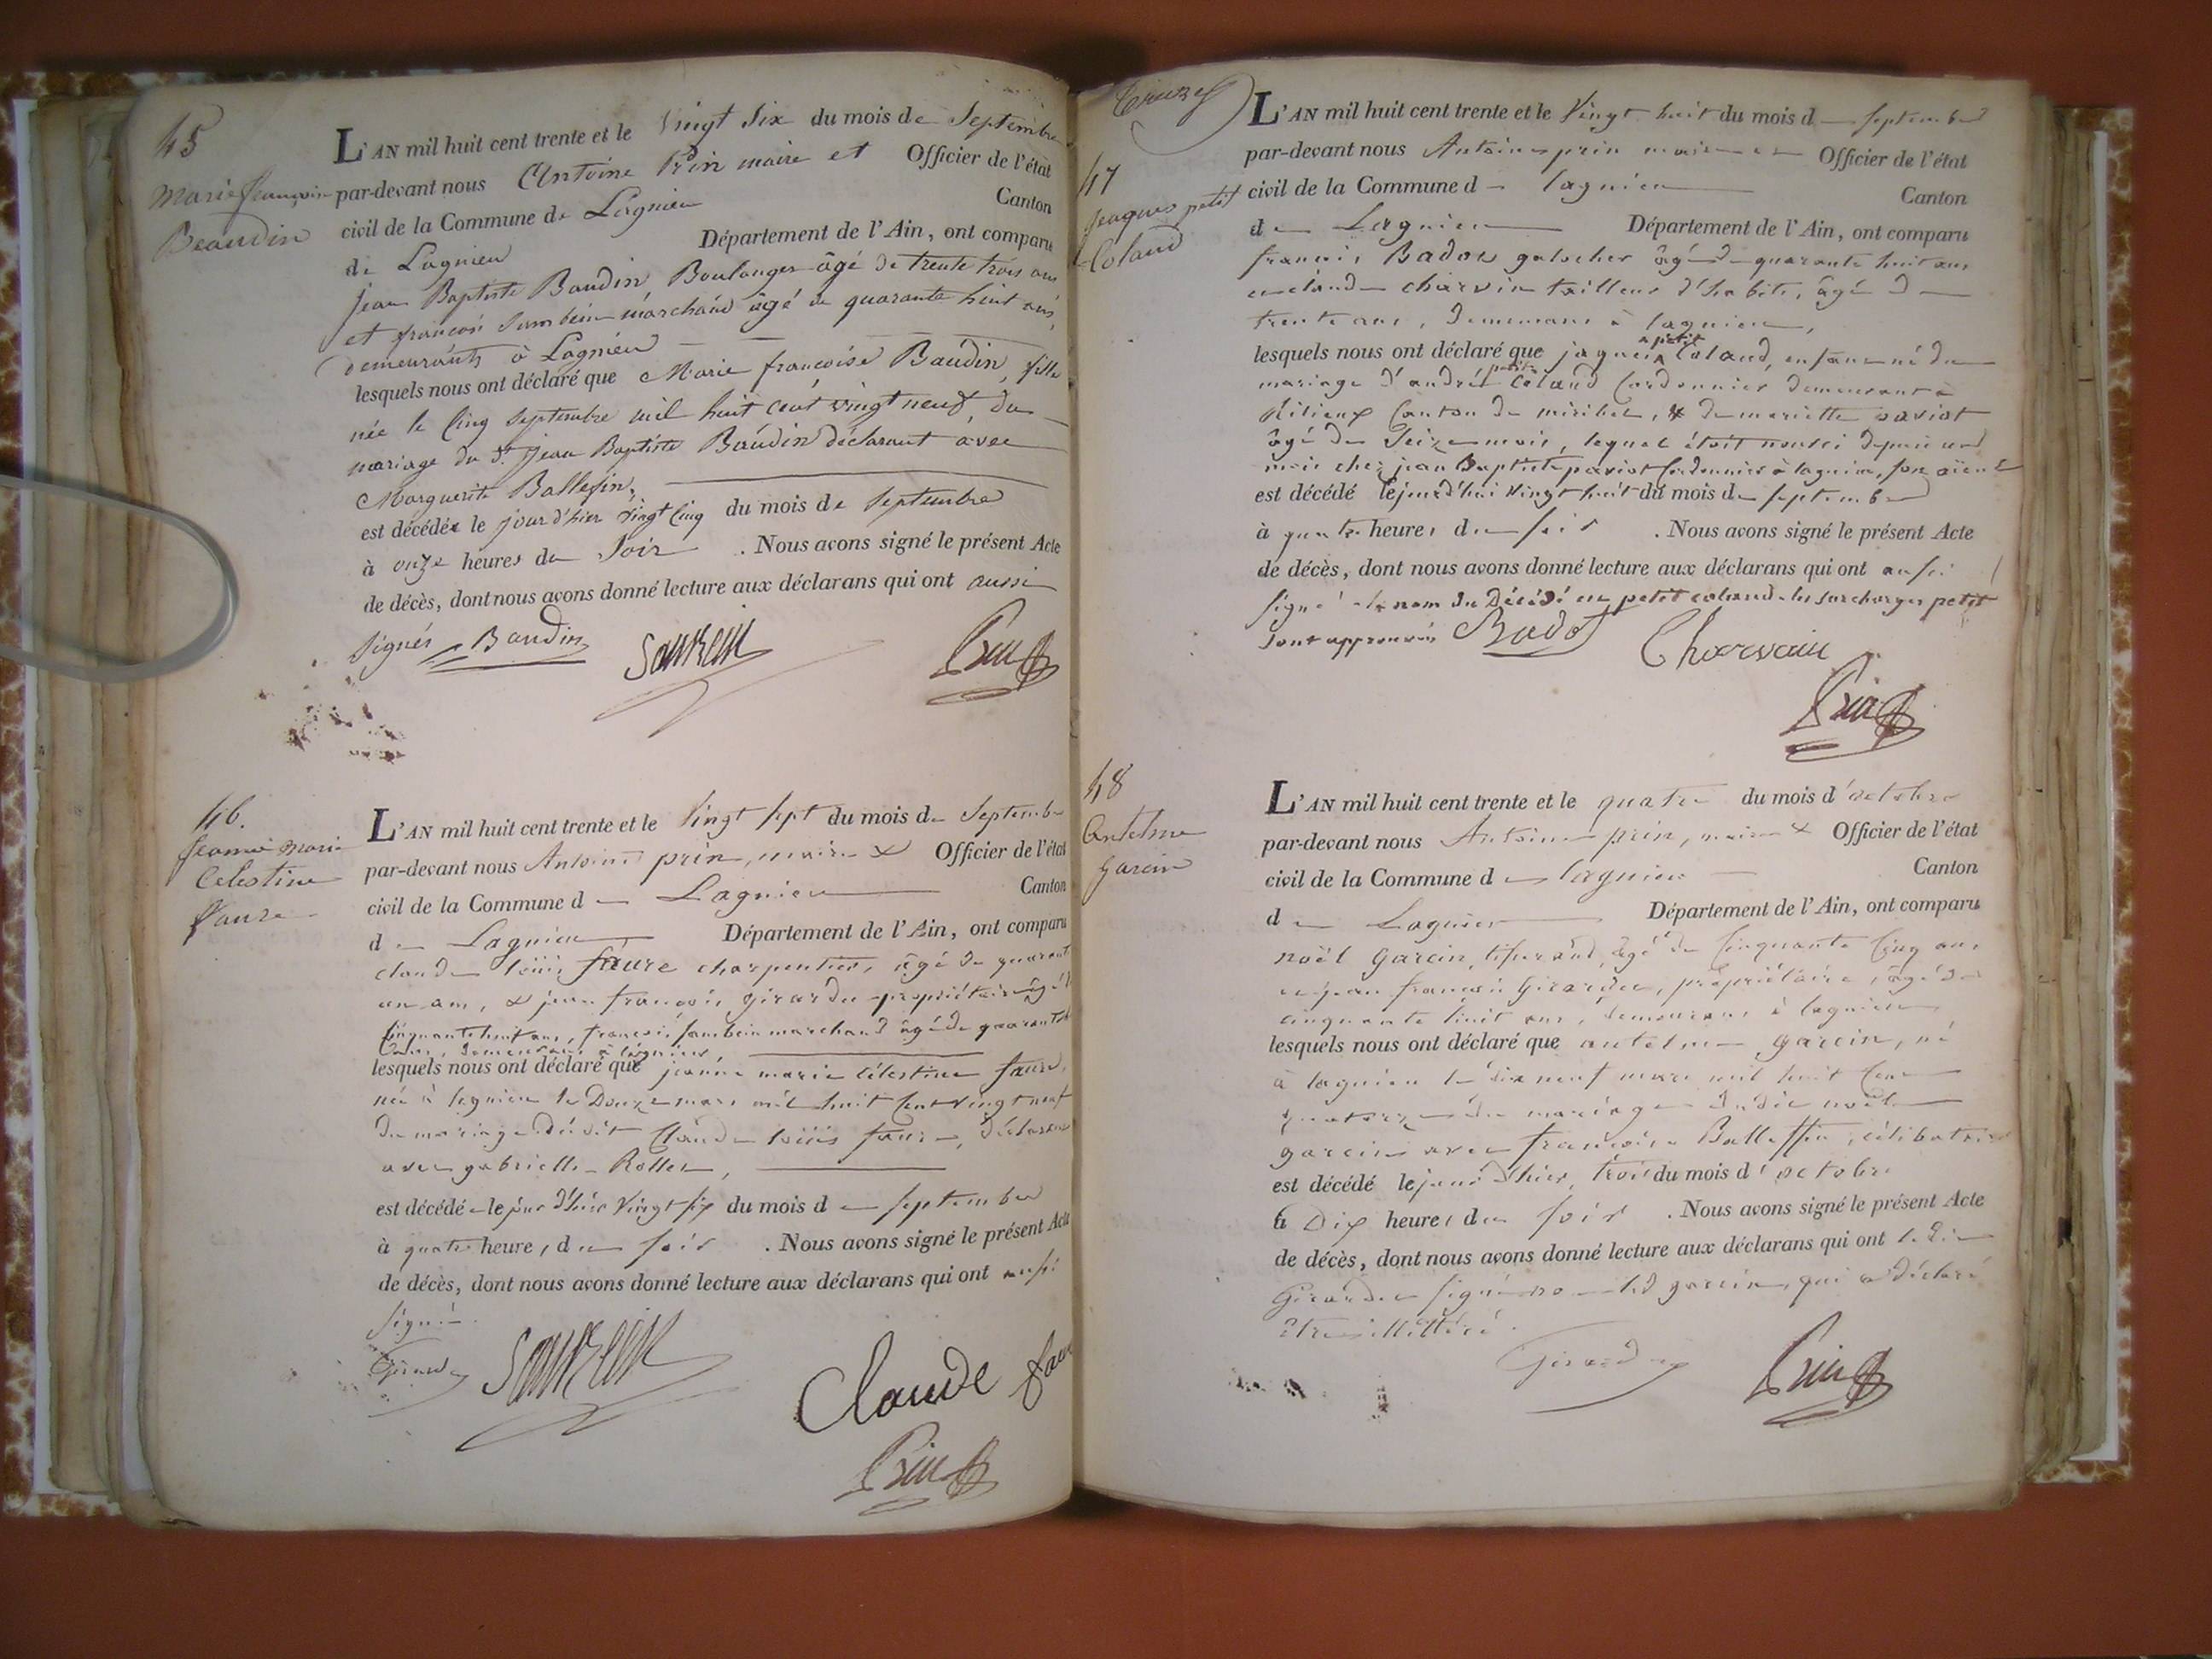 45
Marie françoise
Beaudin
L'AN mil huit cent trente et le vingt six du mois de Septembre
par-devant nous Antoine Prin maire et Officier de l'état
civil de la Commune de Lagnieu Canton
de Lagnieu Département de l'Ain, ont comparu
Jean Baptiste Baudin Boulanger âgé de trente trois ans
et françois Sambein marchand âgé de quarante huit ans,
demeurants à Lagnieu
lesquels nous ont déclaré que Marie françoise Baudin, fille
née le cinq septembre mil huit cent vingt neuf, du
mariage du Sr. Jean Baptiste Baudin déclarant avec
Marguerite Ballefin,
est décédée le jour d'hier vingt cinq du mois de septembre
à onze heures du soir . Nous avons signé le présent Acte
de décès, dont nous avons donné lecture aux déclarans qui ont aussi
signés Baudin Prin
46.
Jeanne Marie
Celestine
faure
L'AN mil huit cent trente et le vingt sept du mois de Septembre
par-devant nous Antoine prin, maire & Officier de l'état
civil de la Commune de Lagnieu Canton
de Lagnieu Département de l'Ain, ont comparu
claude loüis faure charpentier, âgé de quarante
un ans, & jean françois girardee propriétaire âgé d
cinquante huit ans, françois sambein marchand âgé de quarante
ans, demeurans à lagnieu,
lesquels nous ont déclaré que jeanne marie célestine faure,
née à lagnieu le Douze mars mil huit cent vingt neuf
du mariage dudit Claude loüis faure, déclarant
avec gabrielle Rollet,
est décédé e le jour d'hier vingt six du mois de septembre
à quatre heures du soir . Nous avons signé le présent Acte
de décès, dont nous avons donné lecture aux déclarans qui ont aussi
signé.
Claude faure
Prin
47
jaques petit
Coland
L'AN mil huit cent trente et le Vingt huit du mois de septembre
par-devant nous Antoine prin maire et Officier de l'état
civil de la Commune de lagnieu Canton
de Lagnieu Département de l'Ain, ont comparu
françois Badou galocher âgé de quarante huit ans
et claude charvin tailleur d'habits, âgé de
trente ans, demeurans à lagnieu,
lesquels nous ont déclaré que jaques petit Coland, enfant né du
mariage d'andré petit Coland Cordonnier demeurant à
Rilieux Canton de miribel, & de mariette paviot
âgé de seize mois, lequel étoit nourri depuis un
mois chez jean Baptiste paviot Cordonnier à lagnieu, son aïeul
est décédé lejourd'hui vingt huit du mois de septembre
à quatre heures du soir . Nous avons signé le présent Acte
de décès, dont nous avons donné lecture aux déclarans qui ont aussi
signé le nom du Décédé est petit coland. les surcharges petit
sont approuvées Badot Charvain
Prin
48
Antelme
garcin
L'AN mil huit cent trente et le quatre du mois d'octobre
par-devant nous Antoine prin, maire & Officier de l'état
civil de la Commune de lagnieu Canton
de Lagnieu Département de l'Ain, ont comparu
noël garcin, tisserand, âgé de cinquante cinq ans
et jean françois girardee, propriétaire, âgé de
cinquante huit ans, demeurans à lagnieu
lesquels nous ont déclaré que antelme garcin, né
à lagnieu le dix neuf mars mil huit cent
quatorze du mariage dudit noël
garcin avec françoise Balleffin, célibataire
est décédé lejour d'hier, trois du mois d'octobre
à Dix heures du soir . Nous avons signé le présent Acte
de décès, dont nous avons donné lecture aux déclarans qui ont ledit
Girardee signé non led garcin, qui a déclaré
être illittéré.
Girardee Prin